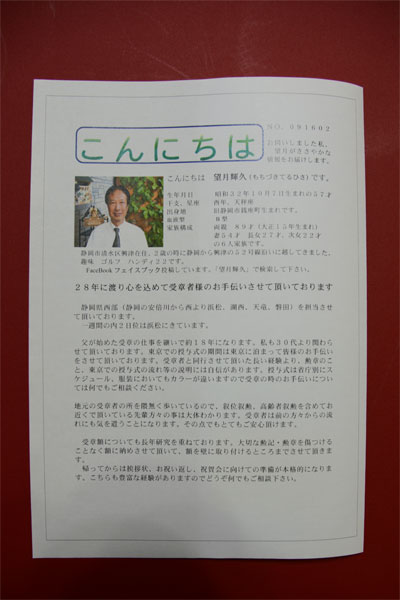 NO.091602
こんにちは
お伺いしました私、
望月がささやかな
情報をお届けします。
こんにちは 望月輝久(もちづきてるひさ)です。
生年月日 昭和32年10月7日生まれの57才
干支、星座 酉年、天秤座
出身地 旧静岡市桃園町生まれです。
血液型 B型
家族構成 両親 89才(大正15年生まれ)
妻54才 長女27才、次女22才
の6人家族です。
静岡市清水区興津在住、2歳の時に静岡から興津の52号線沿いに越してきました。
趣味 ゴルフ ハンディ22です。
FaceBookフェイスブック投稿しています。「望月輝久」で検索して下さい。
28年に渡り心を込めて受章者様のお手伝いさせて頂いております
静岡県西部(静岡の安倍川から西より浜松、湖西、天竜、磐田)を担当させ
て頂いております。
一週間の内2日位は浜松にきています。
父が始めた受章の仕事を継いで約18年になります。私も30代より関わら
せて頂いております。東京での授与式の期間は東京に泊まって皆様のお手伝い
をさせて頂いております。受章者と同行させて頂いた長い経験より、勲章のこ
と、東京での授与式の流れ等の説明には自信があります。授与式は省庁別にス
ケジュール、服装においてもカラーが違いますので受章の時のお手伝いについ
ては何でもご相談ください。
地元の受章者の所を隈無く歩いているので、叙位叙勲、高齢者叙勲を含めてお
近くで頂いている先輩方々の事は大体わかります。受章者は前の方々からの流
れにも気を遣うことになります。その点でもとてもご安心頂けます。
受章額についても長年研究を重ねております。大切な勲記・勲章を傷つける
ことなく額に納めさせて頂いて、額を壁に取り付けるところまでさせて頂きま
す。
帰ってからは挨拶状、お祝い返し、祝賀会に向けての準備が本格的になりま
す。こちらも豊富な経験がありますのでどうぞ何でもご相談下さい。